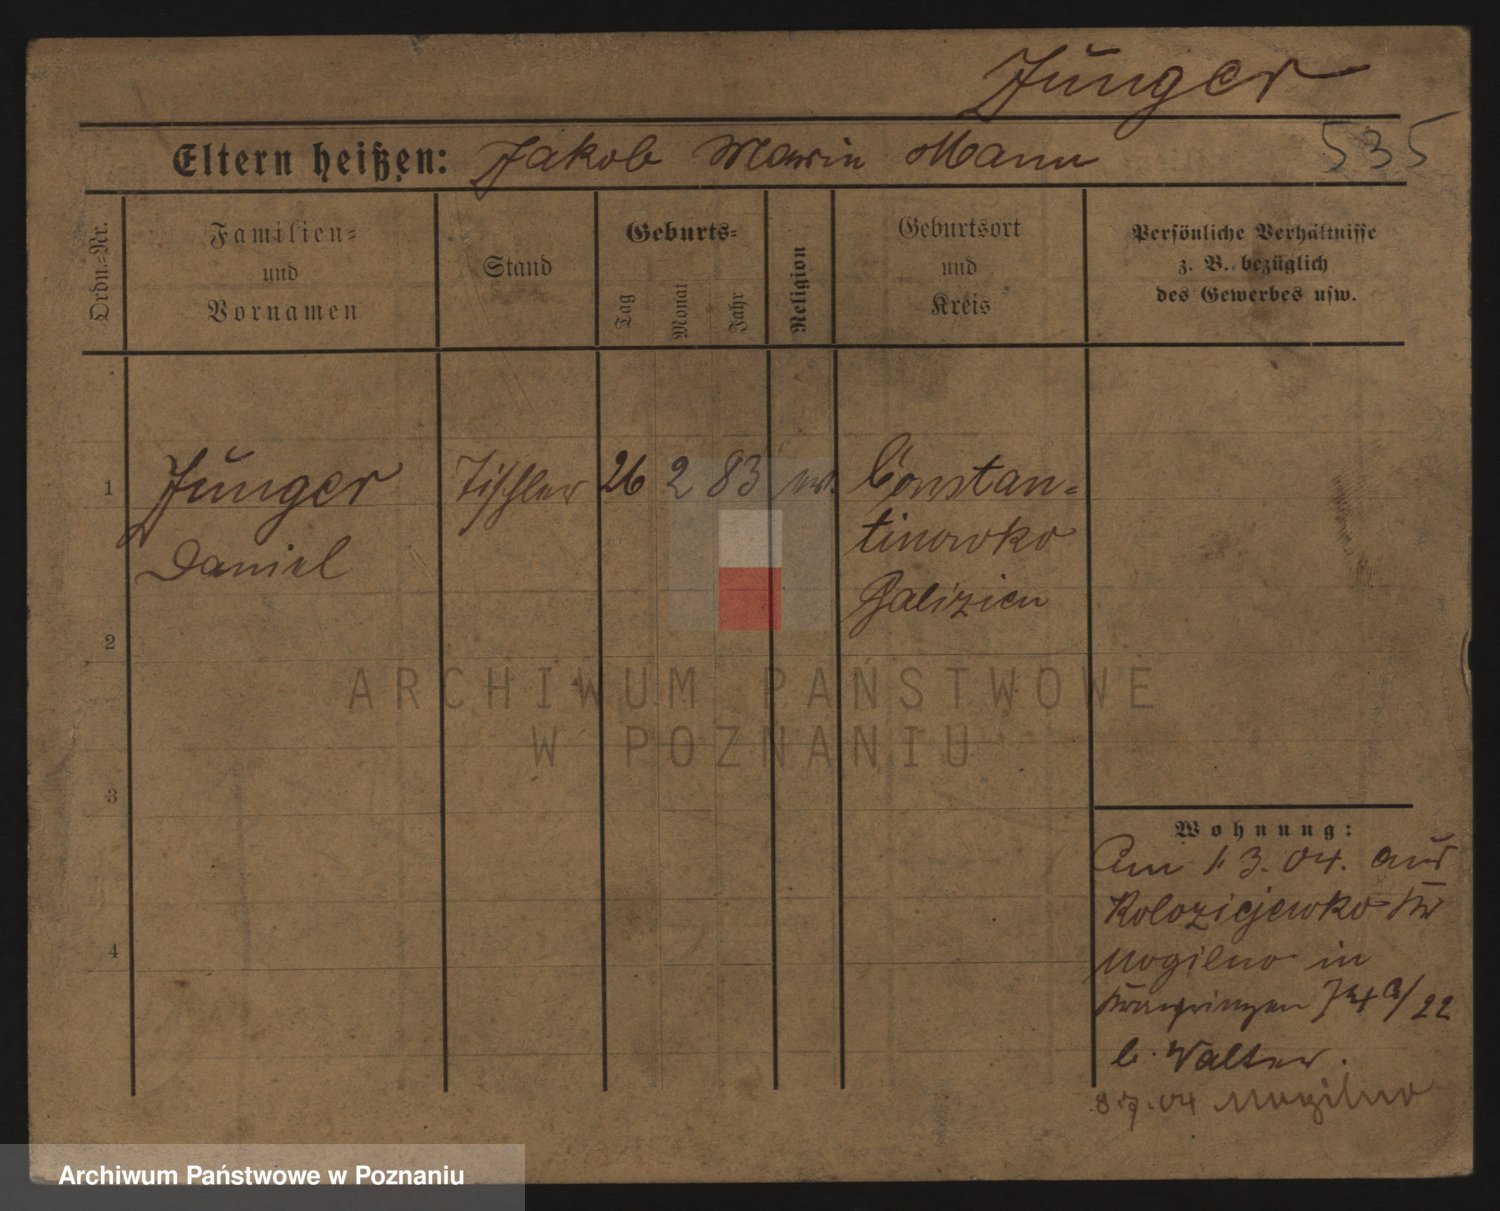 Junger
Eltern heißen: Jakob Marin Mann
535
Ordn.-Nr.
Familien-
und
Vornamen
Stand
Geburts-
Tag
Monat
Jahr
Religion
Geburtsort
und
Kreis
Persönliche Verhältnisse
z. B. bezüglich
des Gewerbes usw.
1
Junger Tischler 26 2 83 ev. Constan-
Daniel
tinowko
Galizien
2
3
4
Wohnung:
Am 1. 3. 04. aus
Koloziejewko Kr
Mogilno in
Kronprinzen 74a/22
b. Walter.
8.7.04 Mogilno
ARCHIWUM PAŃSTWOWE
W POZNANIU
Archiwum Państwowe w Poznaniu